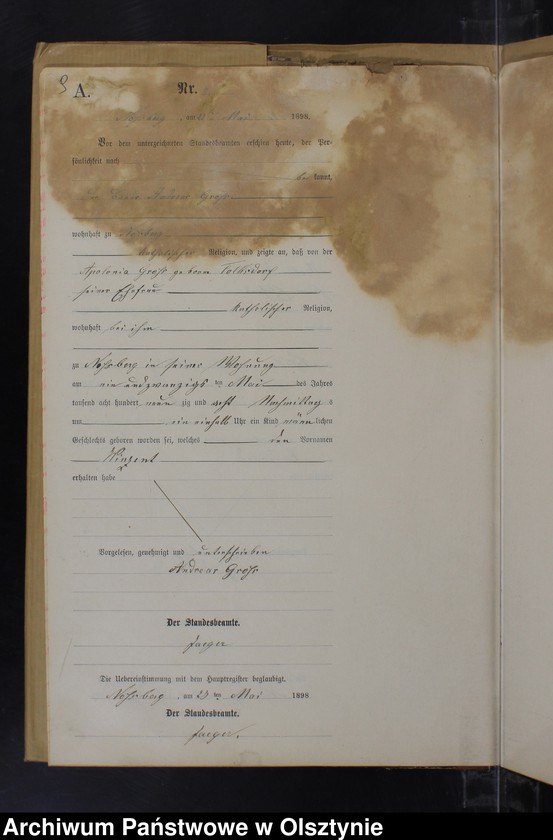 9 A.
Nr.
am Mai 1898.
Vor dem unterzeichneten Standesbeamten erschien heute, der Per-
sönlichkeit nach
be kannt,
Andreas Grohs
wohnhaft zu
katholischer Religion, und zeigte an, daß von der
Apolonia Grohs geborne
seiner Ehefrau
katholischer Religion,
wohnhaft bei ihm
zu in seiner Wohnung
am ein und zwanzigsten Mai des Jahres
tausend acht hundert neun zig und acht Nachmittag s
um ein einhalb Uhr ein Kind männ lichen
Geschlechts geboren worden sei, welches den Vornamen
Vinzent
erhalten habe
Vorgelesen, genehmigt und unterschrieben
Andreas Grohs
Der Standesbeamte.
Jaeger
Die Uebereinstimmung mit dem Hauptregister beglaubigt.
am 23 ten Mai 1898
Der Standesbeamte.
Jaeger.
Archiwum Państwowe w Olsztynie